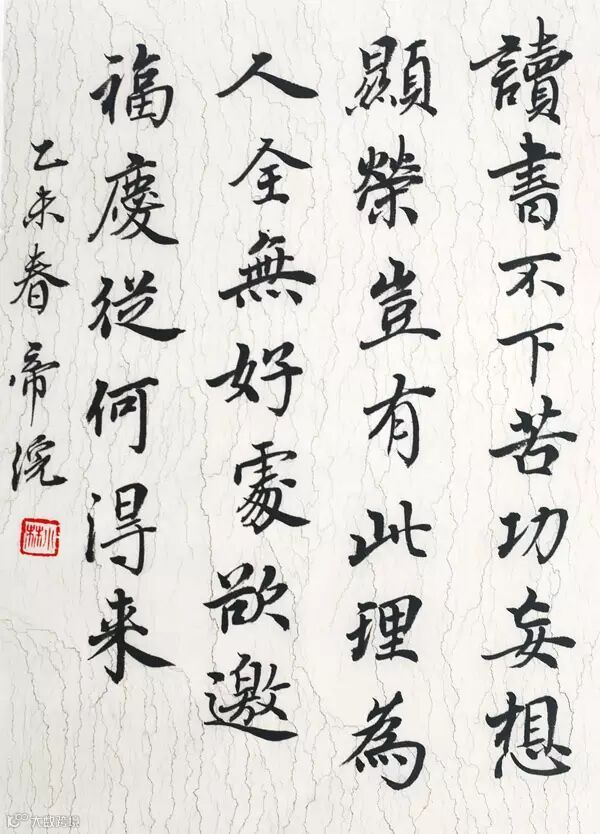 讀書不下苦功妄想
顯榮豈有此理為
人全無好處欲邀
福慶從何得来
乙未春帝浣